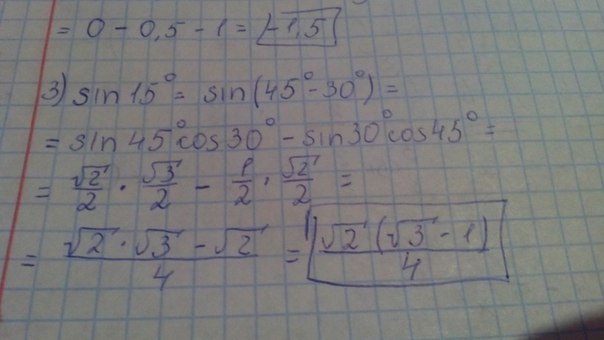 = 0 - 0,5 - 1 = -1,5
3) sin 15° = sin(45° - 30°) =
= sin 45° cos 30° - sin 30° cos 45° =
= √2/2 · √3/2 - 1/2 · √2/2 =
= (√2 · √3 - √2)/4 = √2 (√3 - 1)/4